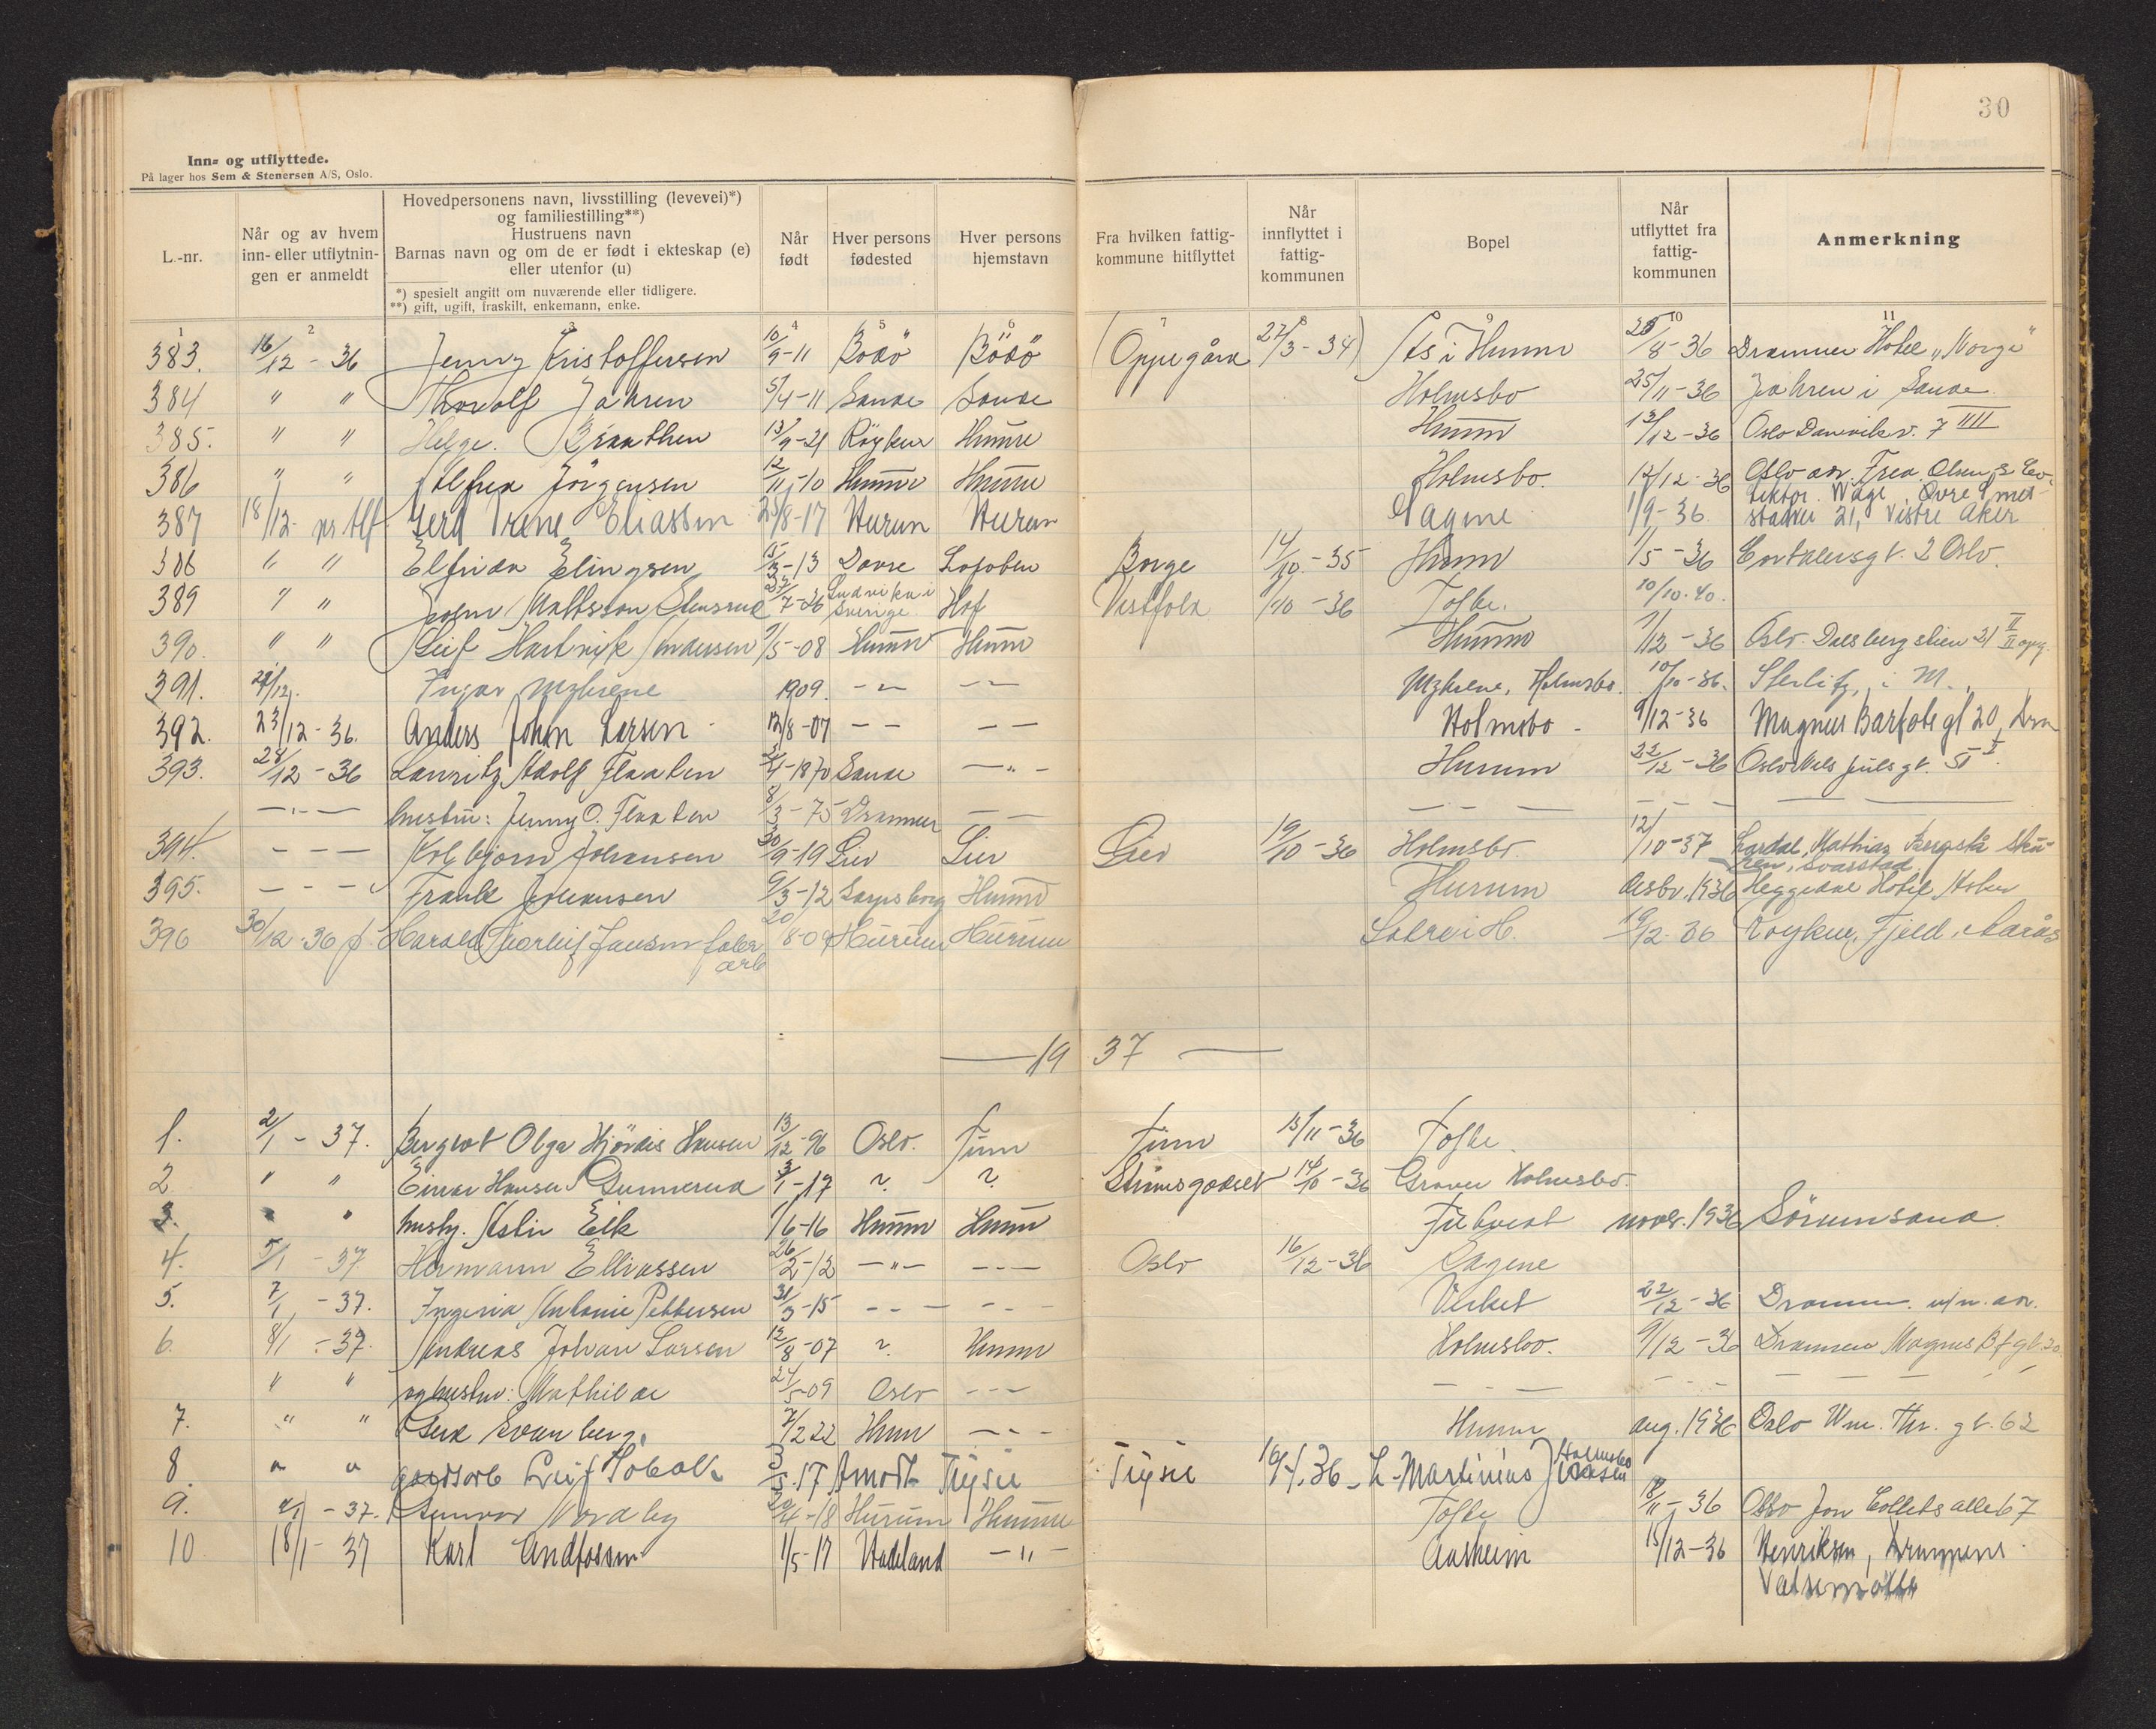 30
Inn- og utflyttede.
På lager hos Sem & Stenersen A/S, Oslo.
L.-nr.
Når og av hvem inn- eller utflytningen er anmeldt
Hovedpersonens navn, livsstilling (levevei)*) og familiestilling**)
Hustruens navn
Barnas navn og om de er født i ekteskap (e) eller utenfor (u)
*) spesielt angitt om nuværende eller tidligere.
**) gift, ugift, fraskilt, enkemann, enke.
Når født
Hver persons fødested
Hver persons hjemstavn
Fra hvilken fattigkommune hitflyttet
Når innflyttet i fattigkommunen
Bopel
Når utflyttet fra fattigkommunen
Anmerkning
1 2 3 4 5 6 7 8 9 10 11
383. 16/12 - 36 Jenny Kristoffersen 10/9-11 Bodö Bödö (Oppegård 27/3-34) Sts i Hurum /8-36 Drammen Hotel „Norge"
384 " " Thorolf Jahren 5/4-11 Sande Sande Holmsbo 25/11-36 Jahren i Sande
385. " " Helge. Braathen 13/9-21 Röyken Hurum Hurum 13/12-36 Oslo Danevik v. 7 IIII
386 " " Alfred Jörgensen 12/11-10 Hurum Hurum Holmsbo. 12/12-36 Oslo adr. Fred. Olsen & Co.
387 18/12 pr. tlf. Gerd Irene Eliassen 25/8-17 Hurum Hurum Sagene 1/9-36 lektor Wåge, Övre Smestadvei 21, Vestre Aker
388 " " Elfrida Elingsen 15/3-13 Dovre Lofoten Borge 14/10-35 Hurum 1/5-36 Cortalersgt. 2 Oslo.
389 " " John Mattsson 27/7-26 Ludvika i Sverige Hof Vestfold 1/10-36 Tofte. 10/10.40.
390. " " Leif Hartvik Andersen 9/5-08 Hurum Hurum Hurum 1/12-36 Oslo. Dalsbergstien 21 II II opg.
391. 22/12. Ingar Myhrene 1909. - " - - " - Myhrene, Holmsbo. 10/10-36. Sterlitz, i M.
392. 23/12-36. Anders Johan Larsen 12/8-07 - - - - Holmsbo - 9/12-36 Magnus Barfots gt 20, Dra
393. 28/12-36 Lauritz Adolf Flaaten 2/4-1870 Sande - " - Hurum 22/12-36 Oslo Nels Juels gt. 51 I.
- " - hustru: Jenny O. Flaaten 8/3-75 Drammen - - - - - - - -
394. - - - Kolbjørn Johansen 30/9-19 Lier Lier Lier 19/10-36 Holmsbo. 12/10-37 Lardal, Mathias Bergstå, Svarstad
395. - - - Frank Johansen 9/3-12 Sarpsborg Hurum Hurum desbr. 1936 Heggedal Hotel, Asker
396 30/12-36 p. Harald Thorleif Jansen fabr. arb 20/8-09 Hurum Hurum Sætre i H. 19/12-36 Røyken, Fjeld, Aarås
19 37
1. 2/1-37. Bergljot Olga Hjördis Hansen 13/12-96 Oslo. Tinn Tinn 15/11-36 Tofte.
2 " " Einar Hansen Gunnerud 3/1-17 ? ? Strømsgodset 14/10-36 Graver Holmsbo.
3. " " hush. Astri Eik 1/6-16 Hurum Hurum Filtvedt novbr. 1936 Sörumsand
4. 5/1-37 Hermann Elliassen 26/2-12 - " - - - - Oslo 16/12-36 Sagene
5. 7/1-37. Ingerid Antonie Pettersen 31/3-15 - - - - - - Verket 22/12-36 Drammen. u/n. adr.
6. 8/1-37. Andreas Johan Larsen 12/8-07 ? Hurum Holmsbo. 9/12-36 Drammen Magnus Bf gt. 20.
" " og hustru: Mathilde 24/5-09 Oslo - - - - - - - - -
7. " " Svanberg. 7/2 22 Hurum - - - Hurum aug. 1936 Oslo Wm. Thr. gt. 62
8 " " gaardsarb Leif 3/3.17 Åmodt Trysil Trysil 16/4.36 L-Martinius Jensen Holmsbo
9. 9/1-37. Gunvor Nordby 30/4-18 Hurum Hurum Tofte 18/11-36 Oslo Jon Collets alle 67
10 18/1-37 Karl Andfossen 1/5-17 Hadeland - " - Aasheim 15/12-36 Henriksen, Drammens